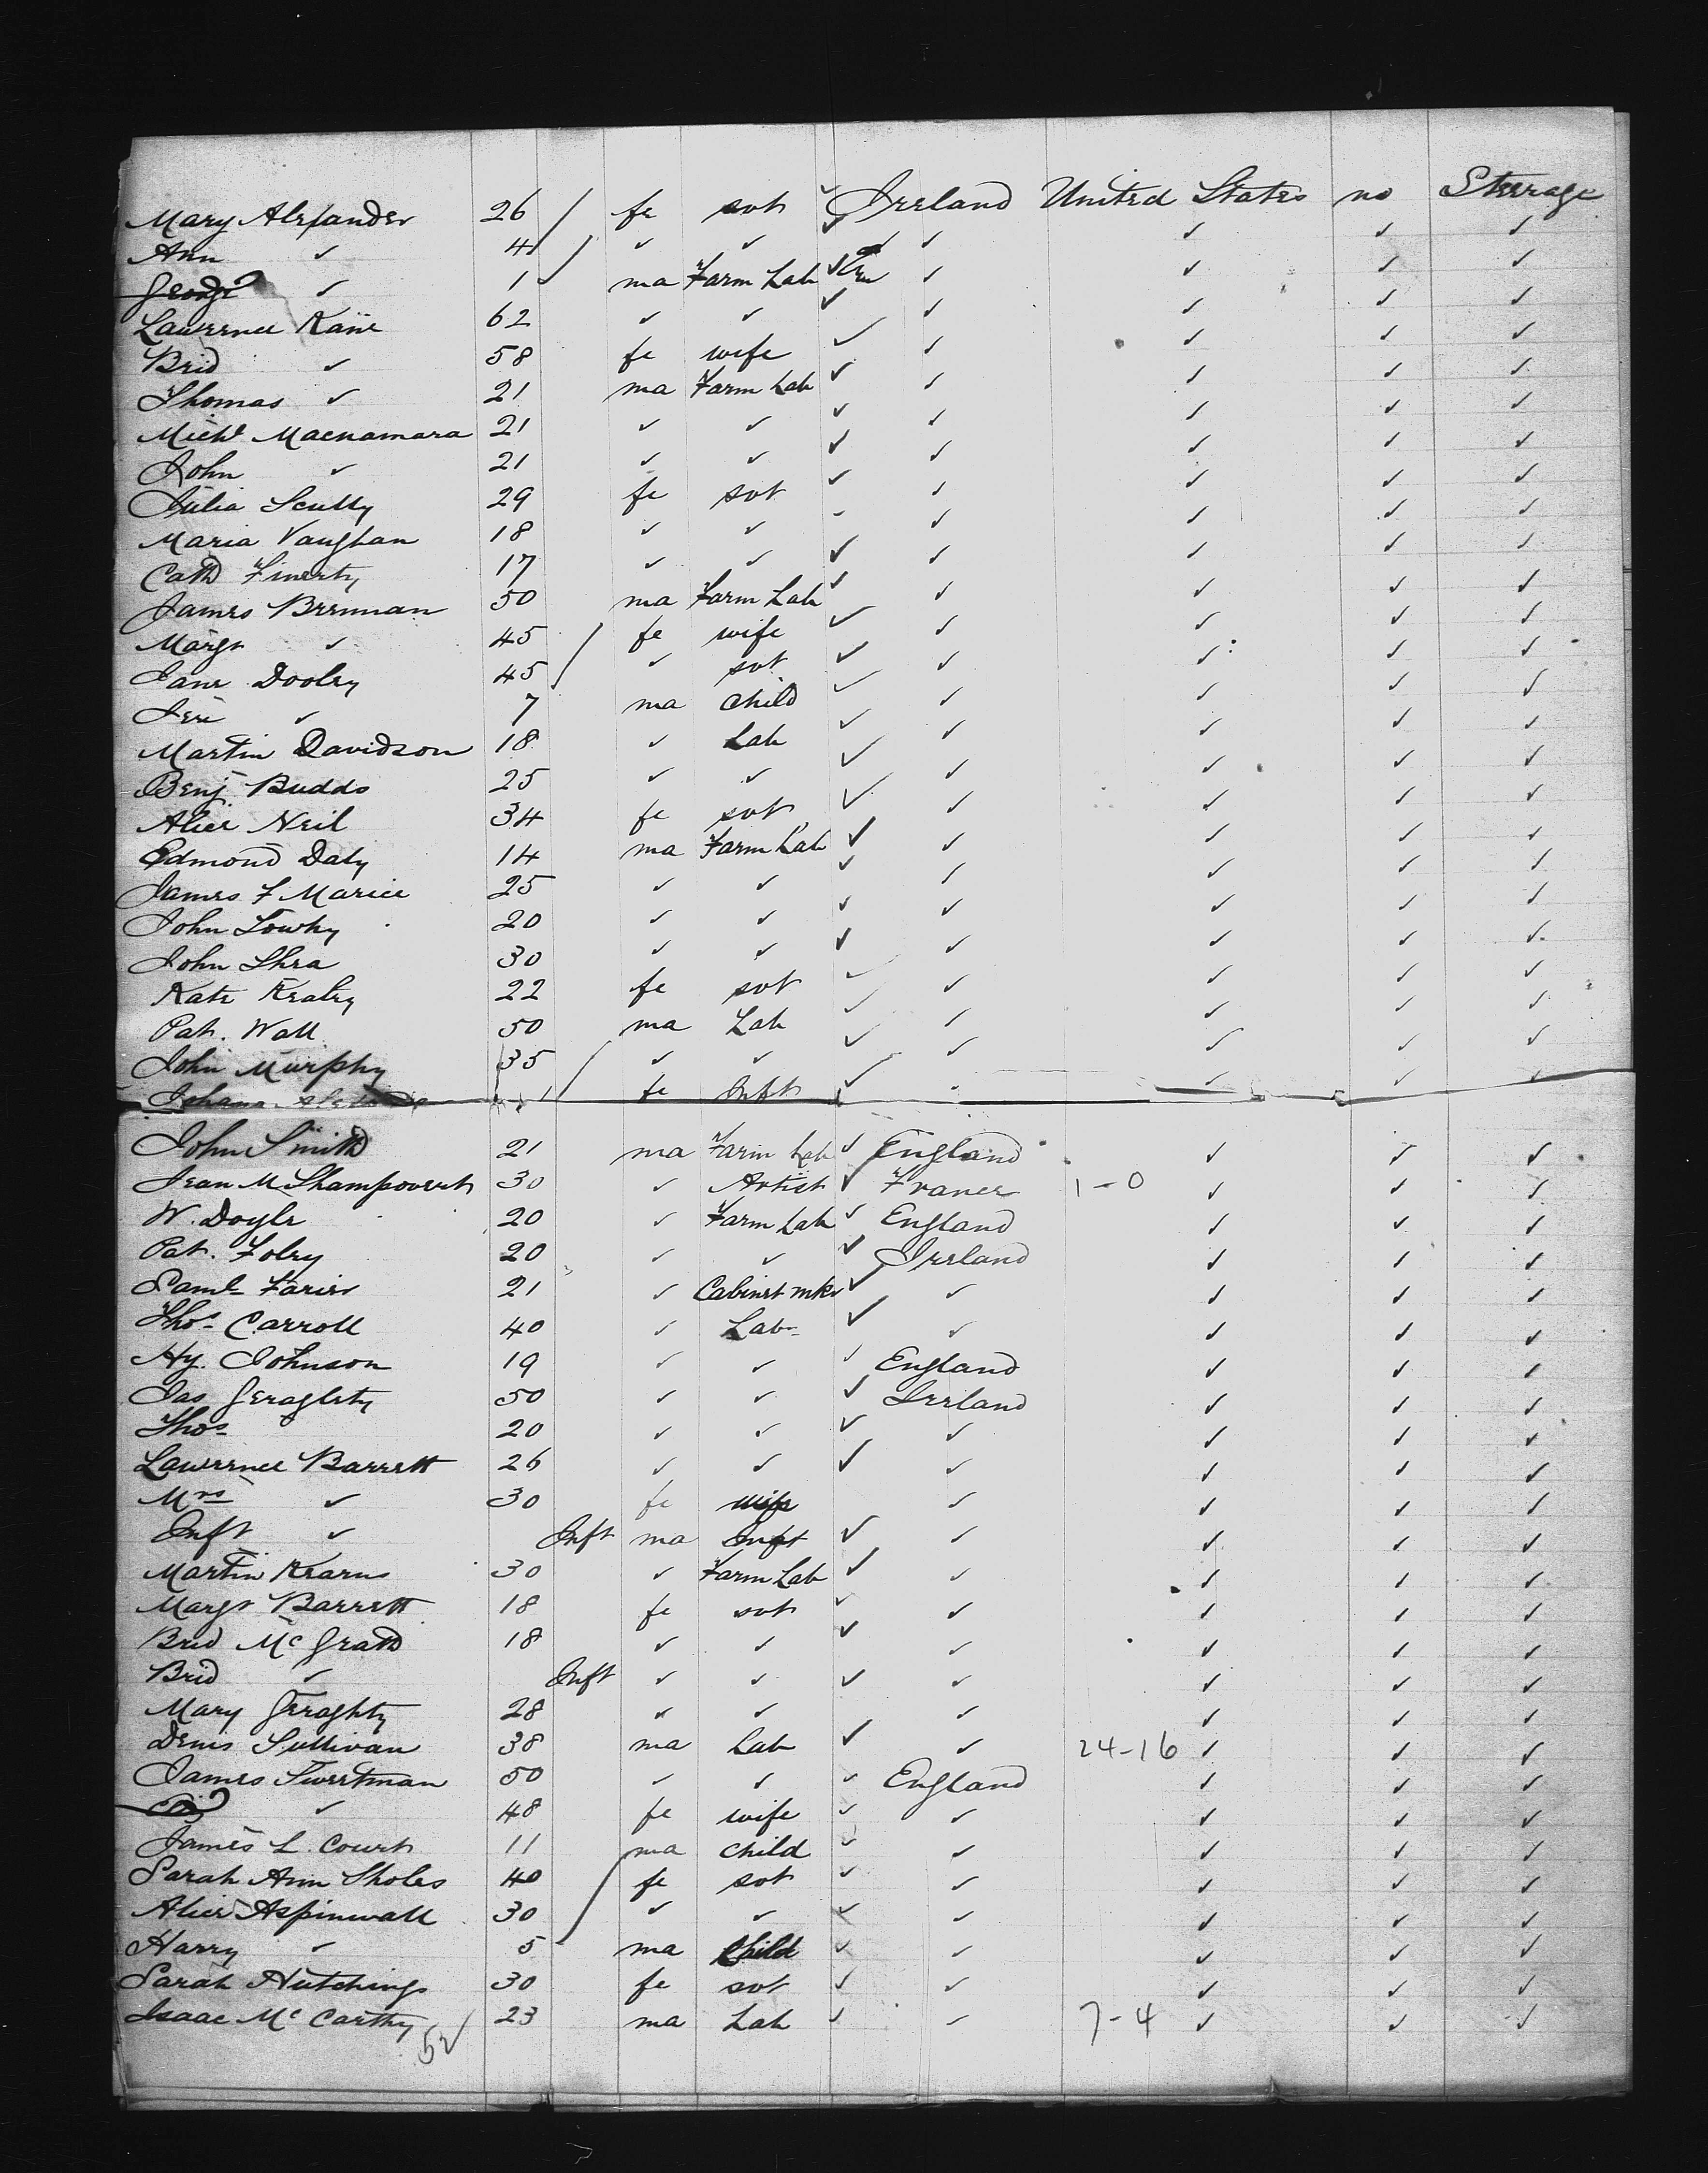 Mary Alexander 26 / fe svt ✓ Ireland United States no Steerage
Ann ✓ 4 / ✓ ✓ ✓ ✓ ✓ ✓ ✓
George ✓ 1 ✓ ma Farm Lab ✓ ✓ ✓ ✓ ✓
Lawrence Kane 62 ✓ ✓ ✓ ✓ ✓ ✓ ✓
Brid ✓ 58 fe wife ✓ ✓ ✓ ✓ ✓
Thomas ✓ 21 ma Farm Lab ✓ ✓ ✓ ✓ ✓
Michl Macnamara 21 ✓ ✓ ✓ ✓ ✓ ✓ ✓
John ✓ 21 ✓ ✓ ✓ ✓ ✓ ✓ ✓
Julia Scully 29 fe svt ✓ ✓ ✓ ✓ ✓
Maria Vaughan 18 ✓ ✓ - ✓ ✓ ✓ ✓
Cath Finerty 17 ✓ ✓ ✓ ✓ ✓ ✓ ✓
James Brennan 50 ma Farm Lab ✓ ✓ ✓ ✓ ✓
Margt ✓ 45 / fe wife ✓ ✓ ✓ ✓ ✓
Jane Dooley 45 / ✓ svt ✓ ✓ ✓ ✓ ✓
Jere ✓ 7 ma child ✓ ✓ ✓ ✓ ✓
Martin Davidson 18 ✓ Lab ✓ ✓ ✓ ✓ ✓
Benj Budds 25 ✓ ✓ ✓ ✓ ✓ ✓ ✓
Alice Neil 34 fe svt ✓ ✓ ✓ ✓ ✓
Edmond Daly 14 ma Farm Lab ✓ ✓ ✓ ✓ ✓
James F Marice 25 ✓ ✓ ✓ ✓ ✓ ✓ ✓
John Towhy 20 ✓ ✓ ✓ ✓ ✓ ✓ ✓
John Shea 30 ✓ ✓ ✓ ✓ ✓ ✓ ✓
Kate Kealey 22 fe svt ✓ ✓ ✓ ✓ ✓
Pat. Wall 50 ma Lab ✓ ✓ ✓ ✓ ✓
John Murphy 35 / ✓ ✓ ✓ ✓ ✓ ✓ ✓
Johana 1 fe Inft ✓ - ✓ ✓ ✓
John Smith 21 ma Farm Lab ✓ England ✓ ✓ ✓
Jean M Shampovert 30 ✓ Artist ✓ France 1-0 ✓ ✓ ✓
W. Doyle 20 ✓ Farm Lab ✓ England ✓ ✓ ✓
Pat. Foley 20 ✓ ✓ ✓ Ireland ✓ ✓ ✓
Saml Farier 21 ✓ Cabinet mkr ✓ ✓ ✓ ✓ ✓
Thos Carroll 40 ✓ Labr ✓ ✓ ✓ ✓ ✓
Hy. Johnson 19 ✓ ✓ ✓ England ✓ ✓ ✓
Jas Geraghty 50 ✓ ✓ ✓ Ireland ✓ ✓ ✓
Thos 20 ✓ ✓ ✓ ✓ ✓ ✓ ✓
Lawrence Barrett 26 ✓ ✓ ✓ ✓ ✓ ✓ ✓
Mrs ✓ 30 fe wife ✓ ✓ ✓ ✓
Inft ✓ Inft ma Inft ✓ ✓ ✓ ✓ ✓
Martin Kearns 30 ✓ Farm Lab ✓ ✓ ✓ ✓ ✓
Margt Barrett 18 fe svt ✓ ✓ ✓ ✓ ✓
Brid McGrath 18 ✓ ✓ ✓ ✓ ✓ ✓ ✓
Brid ✓ Inft ✓ ✓ ✓ ✓ ✓ ✓ ✓
Mary Geraghty 28 ✓ ✓ ✓ ✓ ✓ ✓
Denis Sullivan 38 ma Lab ✓ ✓ 24-16 ✓ ✓ ✓
James Sweetman 50 ✓ ✓ ✓ England ✓ ✓ ✓
✓ 48 fe wife ✓ ✓ ✓ ✓ ✓
James L. Court 11 ma child ✓ ✓ ✓ ✓ ✓
Sarah Ann Sholes 40 / fe svt ✓ ✓ ✓ ✓ ✓
Alice Aspinwall 30 ✓ ✓ ✓ ✓ ✓ ✓ ✓
Harry ✓ 5 ma Child ✓ ✓ ✓ ✓ ✓
Sarah Hutchings 30 fe svt ✓ ✓ ✓ ✓ ✓
Isaac McCarthy 23 ma Lab ✓ ✓ 7-4 ✓ ✓ ✓
52